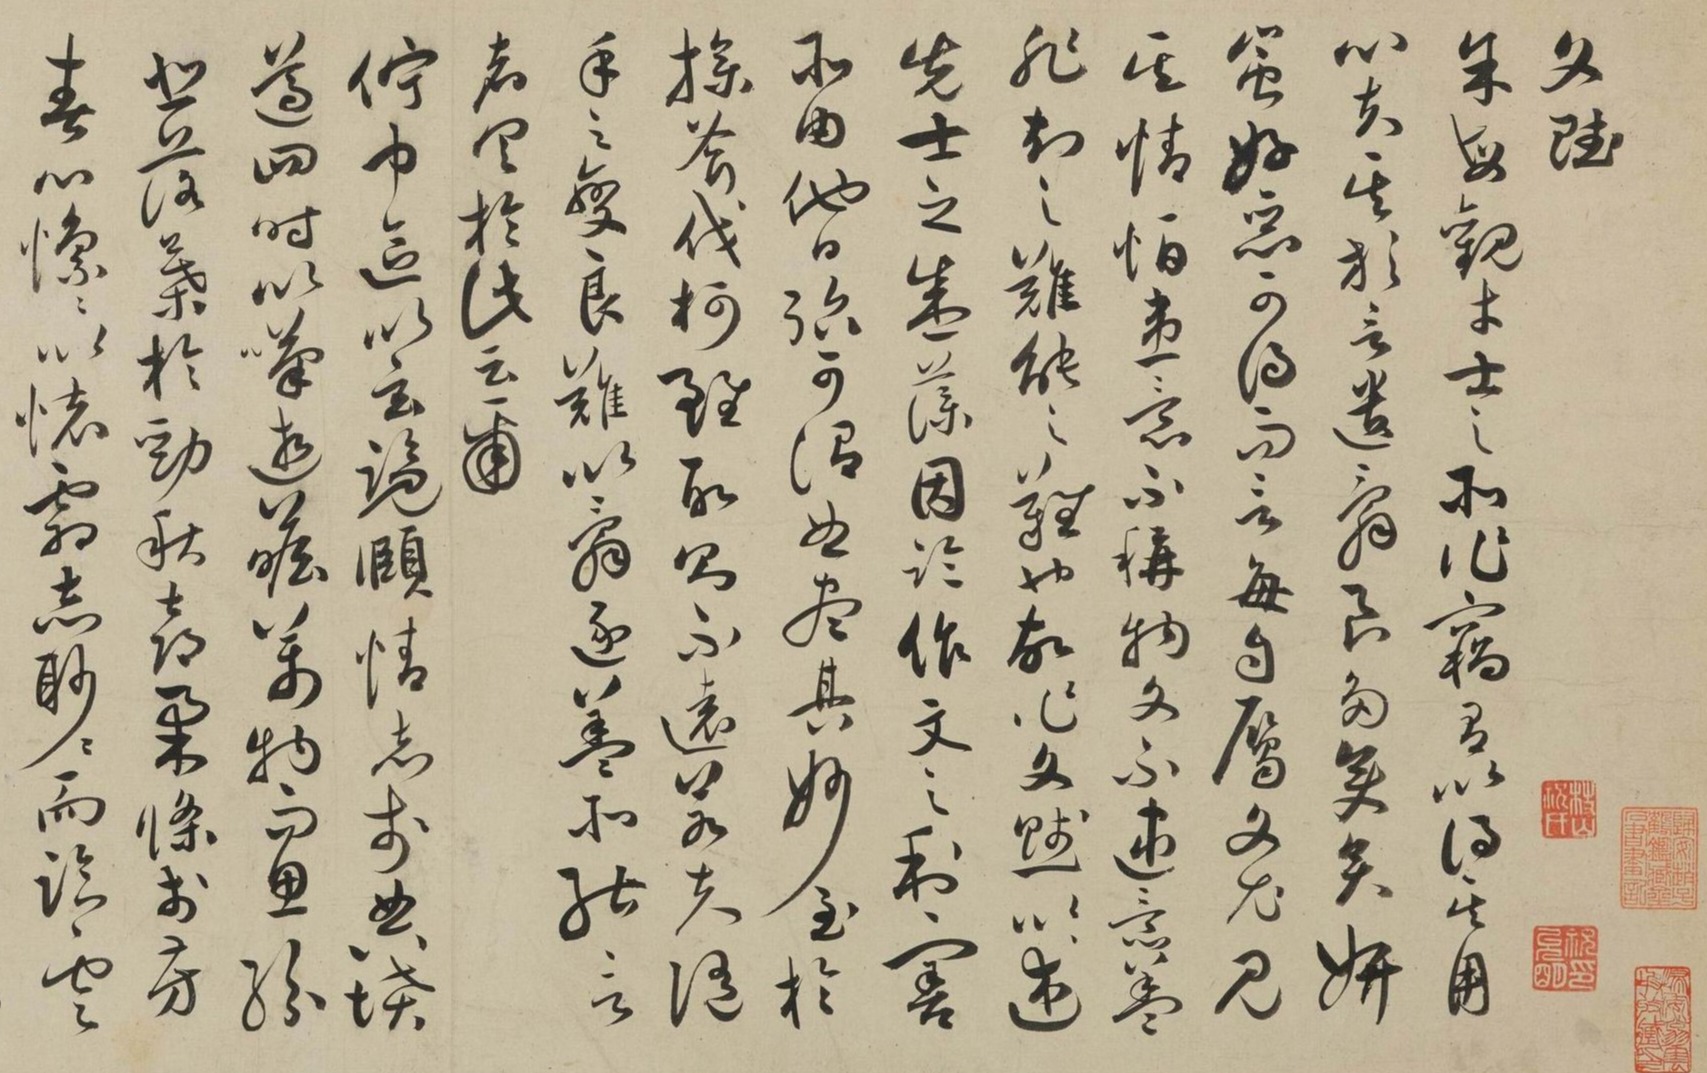 文賦
余每觀才士之所作竊有以得其用
心夫其放言遣辭良多變矣妍
蚩好惡可得而言每自屬文尤見
其情恒患意不稱物文不逮意蓋
非知之難能之難也故作文賦以述
先士之盛藻因論作文之利害
所由他日殆可謂曲盡其妙至於
操斧伐柯雖取則不遠若夫隨
手之變良難以辭逐蓋所能言
者具於此云爾
佇中區以玄覽頤情志於典墳
遵四時以嘆逝瞻萬物而思紛
悲落葉於勁秋喜柔條於芳
春心懍懍以懷霜志眇眇而臨雲
枝山祝氏
祝印允明